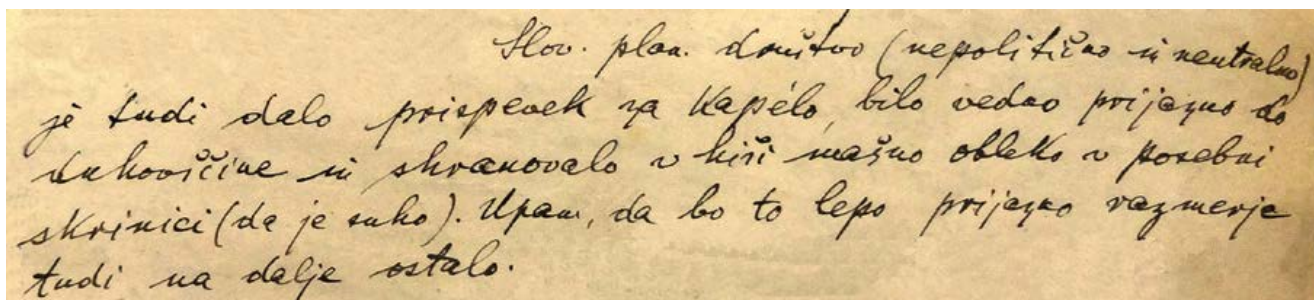 Slov. plan. društvo (nepolitično in neutralno)
je tudi dalo prispevek za Kapélo, bilo vedno prijazno do
duhovščine in shranovalo v hiši mašno obleko v posebni
skrinici (da je suho). Upam, da bo to lepo prijazno razmerje
tudi na dalje ostalo.